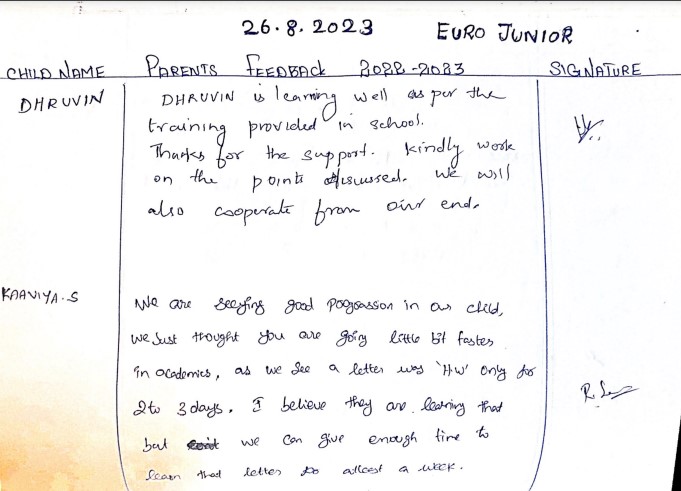 26.8.2023 EURO JUNIOR
CHILD NAME PARENTS FEEDBACK 2022-2023 SIGNATURE
DHRUVIN DHRUVIN is learning well as per the
training provided in school.
Thanks for the support. Kindly work
on the points discussed. We will
also cooperate from our end.
KAAVIYA.S We are seeying good progression in our child,
we Just thought you are going little bit faster
in academics, as we see a letter was 'HW' only for
2 to 3 days. I believe they are learning that
but we can give enough time to
learn that letter for atleast a week.